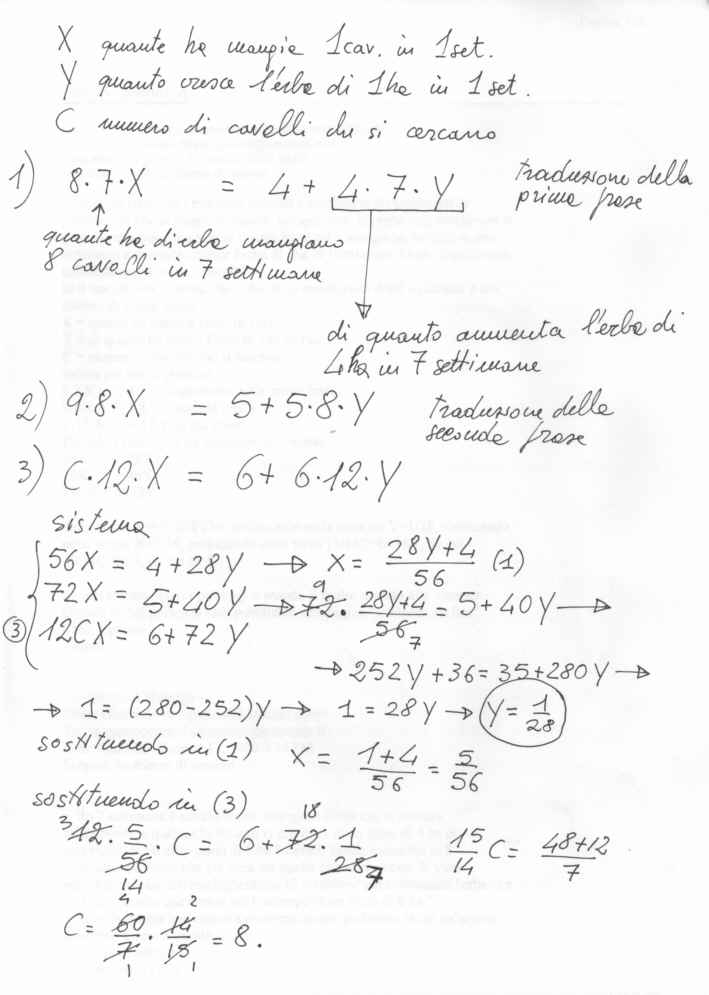 X quante ha mangia 1 cav. in 1 set.
Y quanto cresce l'erba di 1 ha in 1 set.
C numero di cavalli che si cercano
1) 8·7·X = 4 + 4·7·Y traduzione della prima frase
↑
quante ha di erba mangiano
8 cavalli in 7 settimane
di quanto aumenta l'erba di
4 ha in 7 settimane
2) 9·8·X = 5+5·8·Y traduzione della seconda frase
3) C·12·X = 6+ 6·12·Y
sistema
56X = 4+28Y → X = (28Y+4)/56 (1)
72X = 5+40Y → 72 9 · (28Y+4)/56 7 = 5+40Y →
③ 12CX = 6+72Y
→ 252Y+36 = 35+280Y →
→ 1 = (280-252)Y → 1 = 28Y → Y = 1/28
sostituendo in (1) X = (1+4)/56 = 5/56
sostituendo in (3)
3 12 · 5/56 14 · C = 6+ 18 72 · 1/28 7 15/14 C = (48+12)/7
C = 4 60/7 1 · 2 14/15 1 = 8.